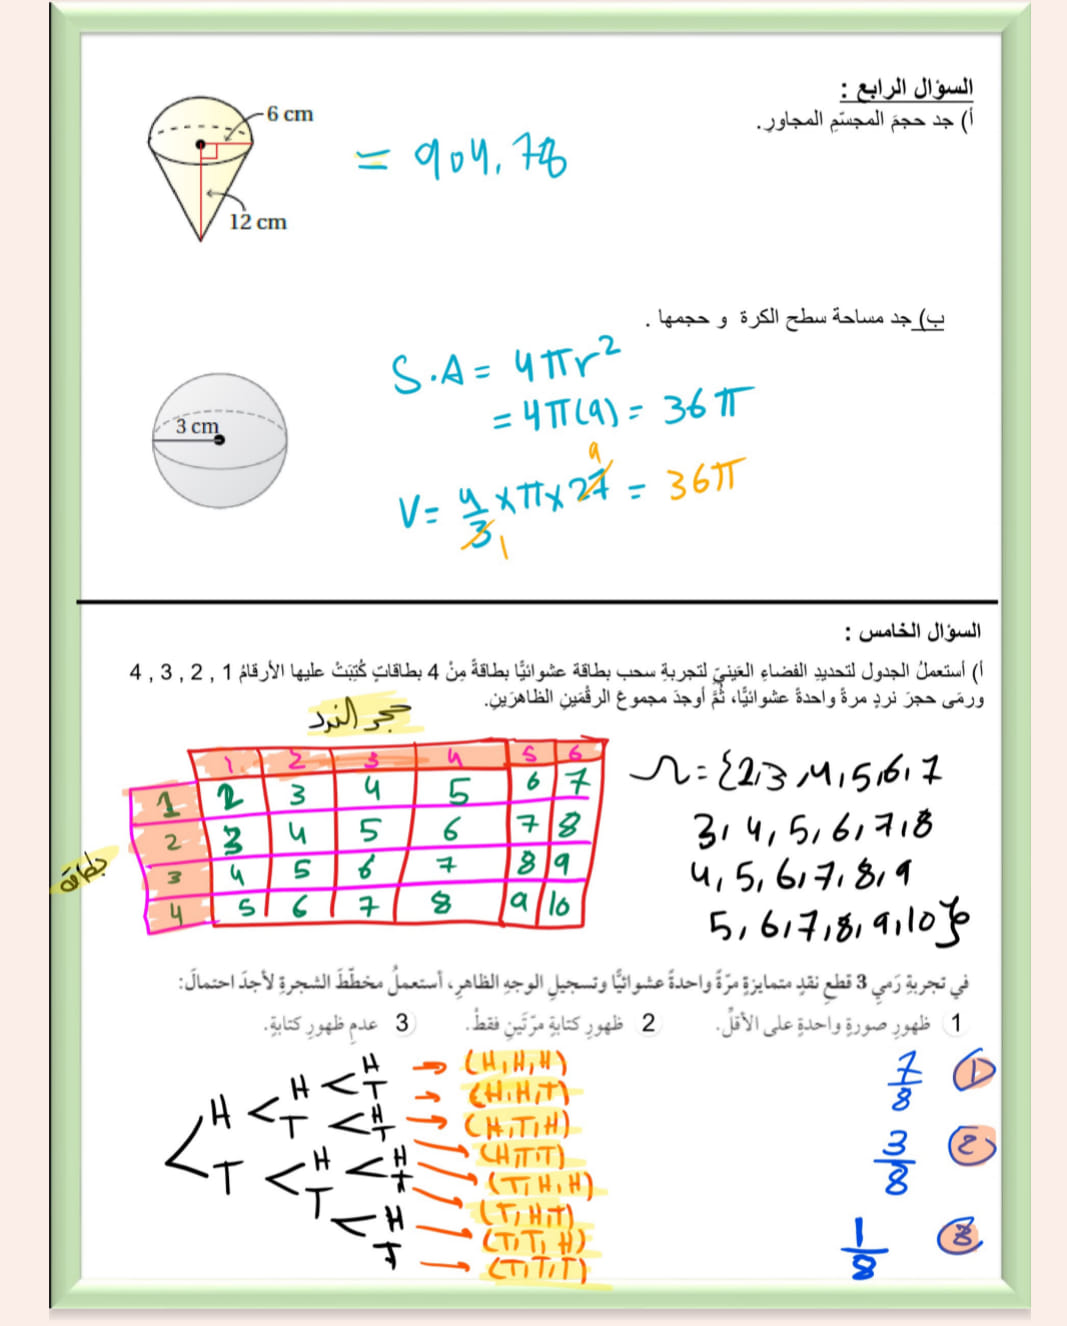 السؤال الرابع :
أ) جد حجمَ المجسّمِ المجاورِ.
6 cm
12 cm
= 904.78
ب) جد مساحة سطح الكرة و حجمها .
3 cm
S.A = 4πr²
= 4π(9) = 36π
V = 4/3 × π × 27 = 36π
9
1
السؤال الخامس :
أ) أستعملُ الجدول لتحديدِ الفضاءِ العَينيّ لتجربةِ سحب بطاقة عشوائيًّا بطاقةً مِنْ 4 بطاقاتٍ كُتِبَتْ عليها الأرقامُ 1 , 2 , 3 , 4
ورمَى حجرَ نردٍ مرةً واحدةً عشوائيًّا، ثُمَّ أوجدَ مجموعَ الرقْمَينِ الظاهرَينِ.
حجر النرد
1 2 3 4 5 6
1 2 3 4 5 6 7
2 3 4 5 6 7 8
3 4 5 6 7 8 9
4 5 6 7 8 9 10
بطاقة
Ω = {2,3,4,5,6,7
3,4,5,6,7,8
4,5,6,7,8,9
5,6,7,8,9,10}
في تجربةِ رَمي 3 قطعِ نقدٍ متمايزةٍ مرّةً واحدةً عشوائيًّا وتسجيلِ الوجهِ الظاهرِ، أستعملُ مخطّطَ الشجرةِ لأجدَ احتمالَ:
1 ظهورِ صورةٍ واحدةٍ على الأقلِّ. 2 ظهورِ كتابةٍ مرّتَينِ فقطْ. 3 عدمِ ظهورِ كتابةٍ.
H < H < H → (H,H,H)
T → (H,H,T)
T < H → (H,T,H)
T → (H,T,T)
T < H < H → (T,H,H)
T → (T,H,T)
T < H → (T,T,H)
T → (T,T,T)
1 7/8
2 3/8
3 1/8